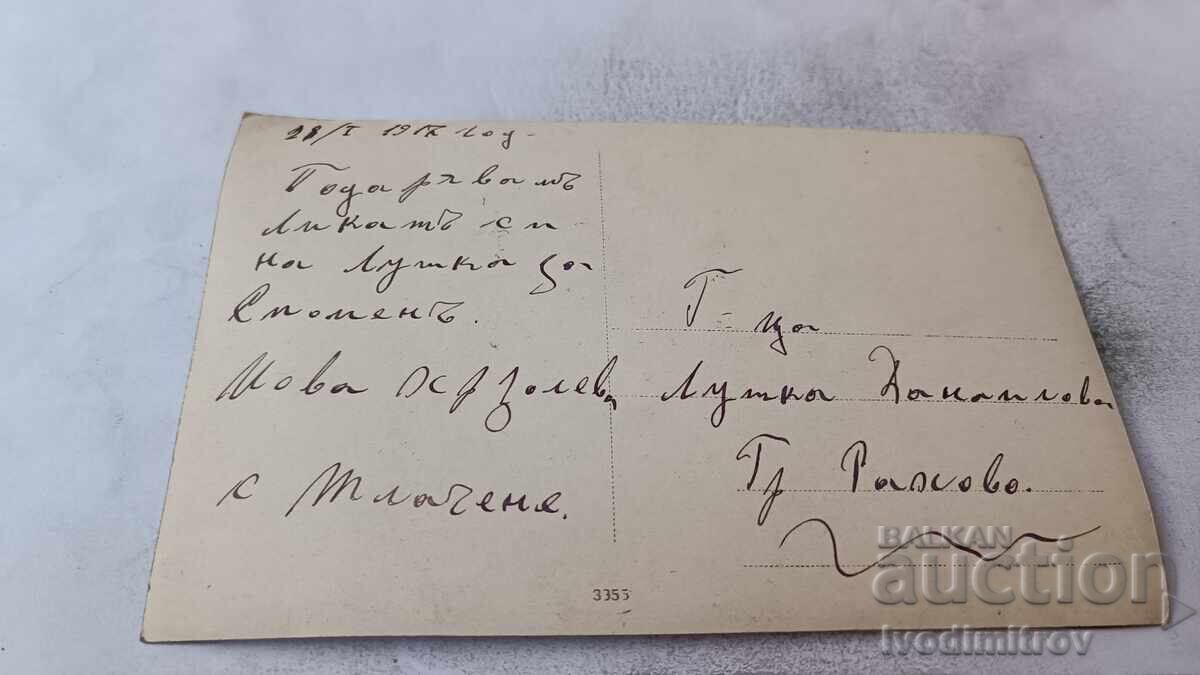 28/I 19 год.
Подарявамъ
Ликатъ си
на Лушка за
Споменъ.
с Тлачене.
Г-ца
Лушка Данаилова
Гр Рахово.
3355
BALKAN
auction
Ivodimitrov